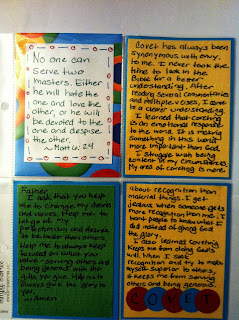 No one can
serve two
masters. Either
he will hate the
one and love the
other, or he will
be devoted to the
one and despise
the other.
~Matt 6:24
Covet has always been
synonymous with envy
to me. I never took the
time to look in the
Bible for a better
understanding. After
reading several commentaries
and multiple verses, I came
to a clearer understanding.
I learned that coveting
is an emotional response
to the world. It is making
something in this world
more important than God.
I struggle with being
content in my circumstances.
My area of coveting is more
Father,
I ask that you help
me to change my desire
and values. Help me to
let go of my
perfectionism and desire
to be better than others.
Help me to always keep
focused on what you
value - serving others and
being generous with the
gifts you give. Help me to
always give the glory to
you.
~Amen
about recognition than
material things. I get
jealous when someone gets
more recognition than me. I
want people to know what I
did instead of giving God
the glory.
I also learned coveting
keeps me from doing God's
will. When I seek
recognition and try to make
myself superior to others
it keeps me from serving
others and being generous.
COVET